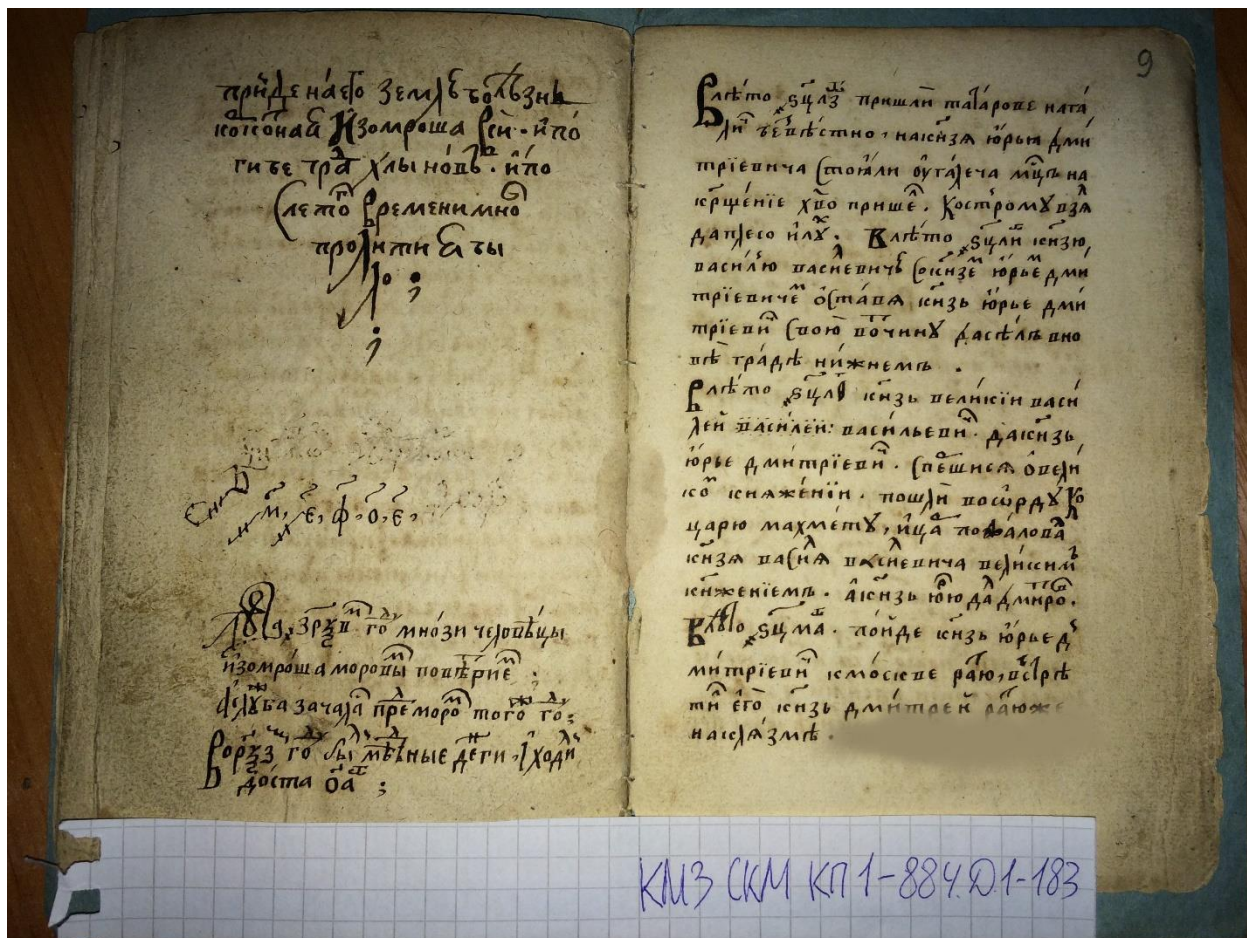 прїиде на его землѣ болѣзнь
Изомроша вси. и по
гибе гра хлыновъ. и по
сле того времени мно
прольти бы
м҃, є҃, ф҃, о҃, є҃,
зрѯв го мнози человѣцы
изомроша моровы повѣтрие
зачала пре моро того го;
го бы мѣдные денги, и ходи
до ста
9
Влѣто ѕцлз пришли татарове
безвѣстно, на кнзя юрьи дми
трїевича стояли оу галеча мцъ на
крщенїе хво прише. Костромꙋ взя
да плесо и лꙋ. Влѣто ѕцли кнзю
василью василевичѣ со кнзе юрье дми
трїевиче остава кнзь юрье дми
трїеви свою вочинꙋ
граде нижнемъ.
Влѣто ѕцл кнзь великїи васи
лей василеи: васильеви. да кнзь
юрье дмитрїеви. спешися о вели
ко княженїи. пошли во ордꙋ ко
царю махметꙋ, и ца пожалова
кнзя василя василевича великим
кнженїемъ. а кнзь юрю да дмитро.
Влѣто ѕцма. поиде кнзь юрье д
митрїеви к москве раю, встрѣ
ти его кнзь дмитрей раю же
на клязмѣ.
КМЗ СКМ КП 1-884. Д.1-183